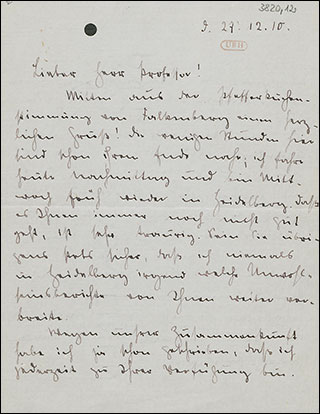 3820,120
F. 27. 12. 10.
UBH
Lieber Herr Professor!
Mitten aus der Pfefferkuchen-
stimmung von Falkenberg einen herz-
lichen Gruß! Die wenigen Stunden hier
sind schon ihrem Ende nahe; ich fahre
heute Nachmittag und bin Mitt-
woch früh wieder in Heidelberg. Daß
es Ihnen immer noch nicht gut
geht, ist sehr traurig. Sein Sie übri-
gens stets sicher, daß ich niemals
in Heidelberg irgend welche Unwohl-
seinsberichte von Ihnen weiter ver-
breite.
Wegen unsrer Zusammenkunft
habe ich ja schon geschrieben, daß ich
jederzeit zu Ihrer Verfügung bin.